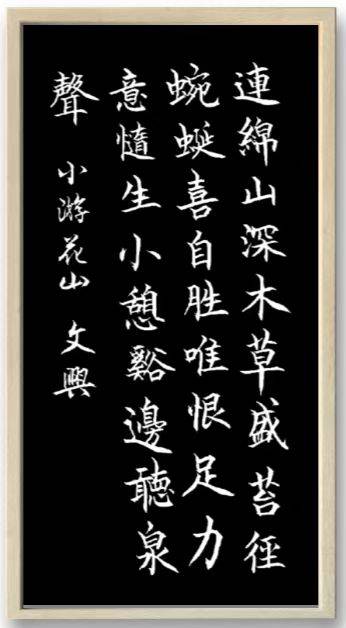 連綿山深木草盛苔徑
蜿蜒喜自胜唯恨足力
意惰生小憩谿邊聽泉
聲
小游花山 文興